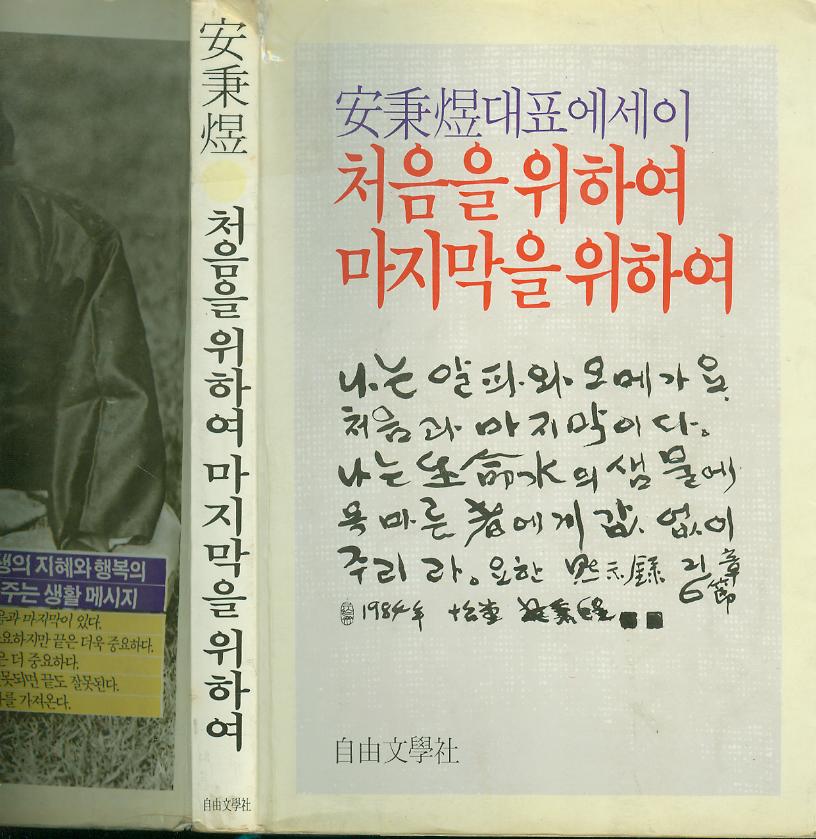 安秉煜대표에세이
처음을 위하여
마지막을 위하여
나는 알파와 오메가요.
처음과 마지막이다.
나는 生命水의 샘물에
목마른 者에게 값 없이
주리라。 요한 默示錄 21章 6節
1984年
自由文學社
安秉煜
처음을 위하여 마지막을 위하여
自由文學社
생의 지혜와 행복의
주는 생활 메시지
음과 마지막이 있다.
요하지만 끝은 더욱 중요하다.
은 더 중요하다.
못되면 끝도 잘못된다.
를 가져온다.